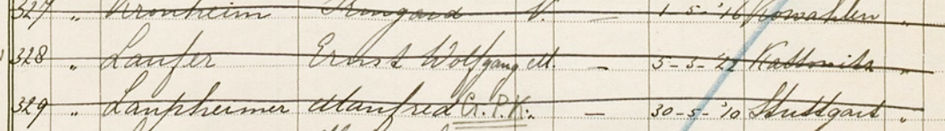 327 " Kronheim Irmgard V. — 1-5-'16 Kowahlen "
328 " Laufer Ernst Wolfgang M. — 5-5-'22 Kattowitz "
329 " Laupheimer Manfred G.P.K. — 30-5-'10 Stuttgart "